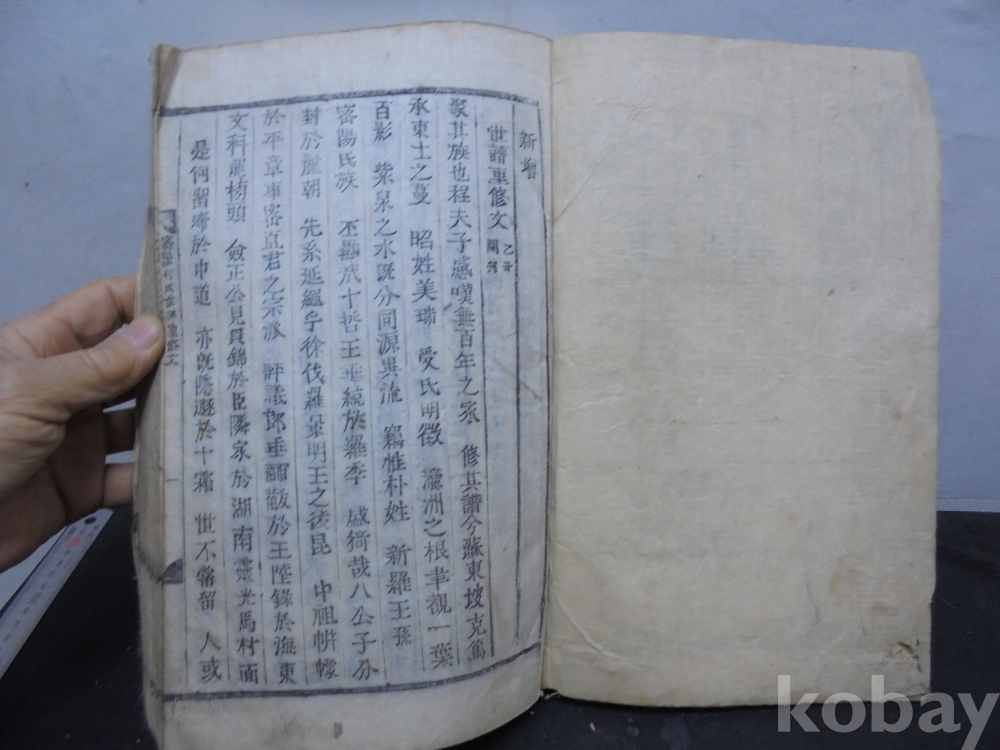 新增
世譜重修文 乙丑 開刊
聚其族也程夫子感嘆無百年之家 修其譜兮蘇東坡克篤
承東土之蔓 昭姓美瑞 受氏明徵 瀛洲之根 觀一葉
百影 紫泉之水旣分同源異流 竊惟朴姓 新羅王孫
密陽氏族 丕顯 十哲王垂統於羅季 盛猗哉八公子分
封於麗朝 先系延繩乎徐伐羅景明王之後昆 中祖
於平章事密直君之宗派 評議郎垂 於王陸錄於海東
文科龍榜頭 僉正公見貝錦於臣隣家於湖南靈光馬村面
是何留滯於中道 亦旣隱遯於十霜 世不常留 人或
一
kobay